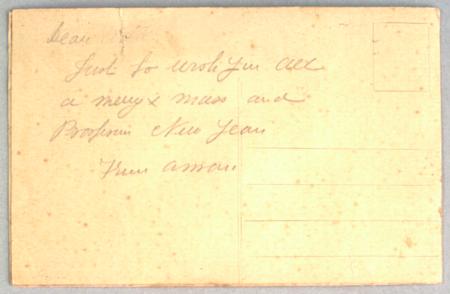 Dear
Just to wish you all
a mery x mass and
Prosprus New Year
from